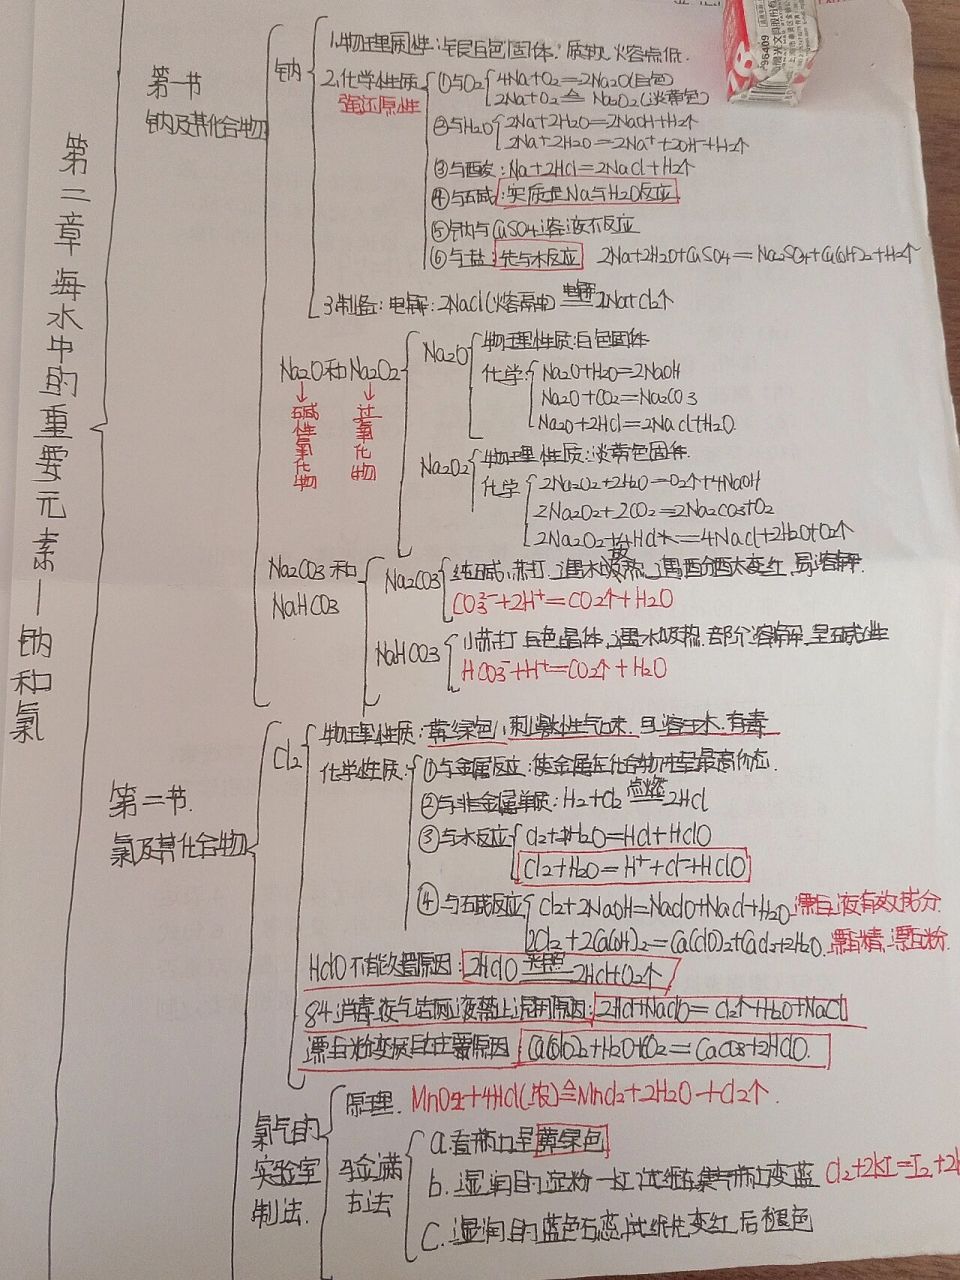 第二章 海水中的重要元素—钠和氯
第一节
钠及其化合物
钠
1.物理性质:银白色固体,质软,熔点低.
2.化学性质
强还原性
①与O2
4Na+O2=2Na2O(白色)
2Na+O2≙Na2O2(淡黄色)
②与H2O
2Na+2H2O=2NaOH+H2↑
2Na+2H2O=2Na⁺+2OH⁻+H2↑
③与酸:Na+2HCl=2NaCl+H2↑
④与碱:实质是Na与H2O反应
⑤钠与CuSO4溶液反应
⑥与盐:先与水反应 2Na+2H2O+CuSO4=Na2SO4+Cu(OH)2+H2↑
3制备:电解:2NaCl(熔融) 电解 2Na+Cl2↑
Na2O和Na2O2
碱性氧化物
过氧化物
Na2O
物理性质:白色固体
化学
Na2O+H2O=2NaOH
Na2O+CO2=Na2CO3
Na2O+2HCl=2NaCl+H2O.
Na2O2
物理性质:淡黄色固体.
化学
2Na2O2+2H2O=O2↑+4NaOH
2Na2O2+2CO2=2Na2CO3+O2
2Na2O2+4HCl=4NaCl+2H2O+O2↑
Na2CO3和
NaHCO3
Na2CO3
纯碱,苏打,遇水放热,遇酚酞变红,易溶解.
CO3²⁻+2H⁺=CO2↑+H2O
NaHCO3
小苏打 白色晶体,遇水吸热.部分溶解,呈碱性
HCO3⁻+H⁺=CO2↑+H2O
第二节.
氯及其化合物
Cl2
物理性质:黄绿色,刺激性气味,且溶于水,有毒
化学性质:
①与金属反应:使金属在化合物中呈最高价态.
②与非金属单质:H2+Cl2 点燃 2HCl
③与水反应
Cl2+H2O=HCl+HClO
Cl2+H2O=H⁺+Cl⁻+HClO
④与碱反应
Cl2+2NaOH=NaClO+NaCl+H2O.漂白液有效成分.
2Cl2+2Ca(OH)2=Ca(ClO)2+CaCl2+2H2O.漂白精,漂白粉.
HClO不能久置原因:2HClO 光照 2HCl+O2↑
84消毒液与洁厕液禁止混用原因:2HCl+NaClO=Cl2↑+H2O+NaCl
漂白粉变质的主要原因 Ca(ClO)2+H2O+CO2=CaCO3+2HClO.
氯气的
实验室
制法.
原理. MnO2+4HCl(浓)≙MnCl2+2H2O+Cl2↑.
验满
方法
a.看瓶口呈黄绿色
b.湿润的淀粉-KI试纸在集气瓶口变蓝 Cl2+2KI=I2+2
C.湿润的蓝色石蕊试纸先变红后褪色